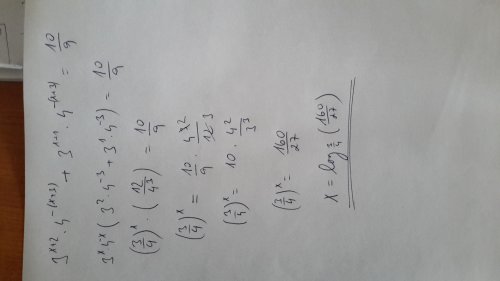 3^{x+2} · 4^{-(x+3)} + 3^{x+1} · 4^{-(x+3)} = 10/9
3^x 4^{-x} (3^2 · 4^{-3} + 3^1 4^{-3}) = 10/9
(3/4)^x · (12/4^3) = 10/9
(3/4)^x = 10/9 · 4^2/3
(3/4)^x = 10 · 4^2/3^3
(3/4)^x = 160/27
x = log_{3/4} (160/27)